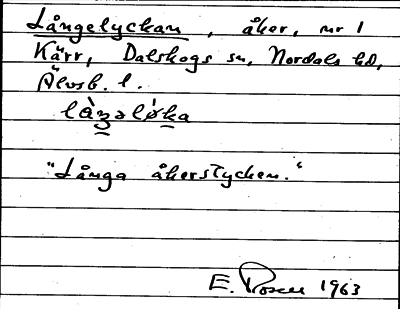 Långelyckan, åker, nr 1
Kärr, Dalskogs sn, Nordals hd,
Älvsb. l.
"Långa åkerstycken."
E. 1963